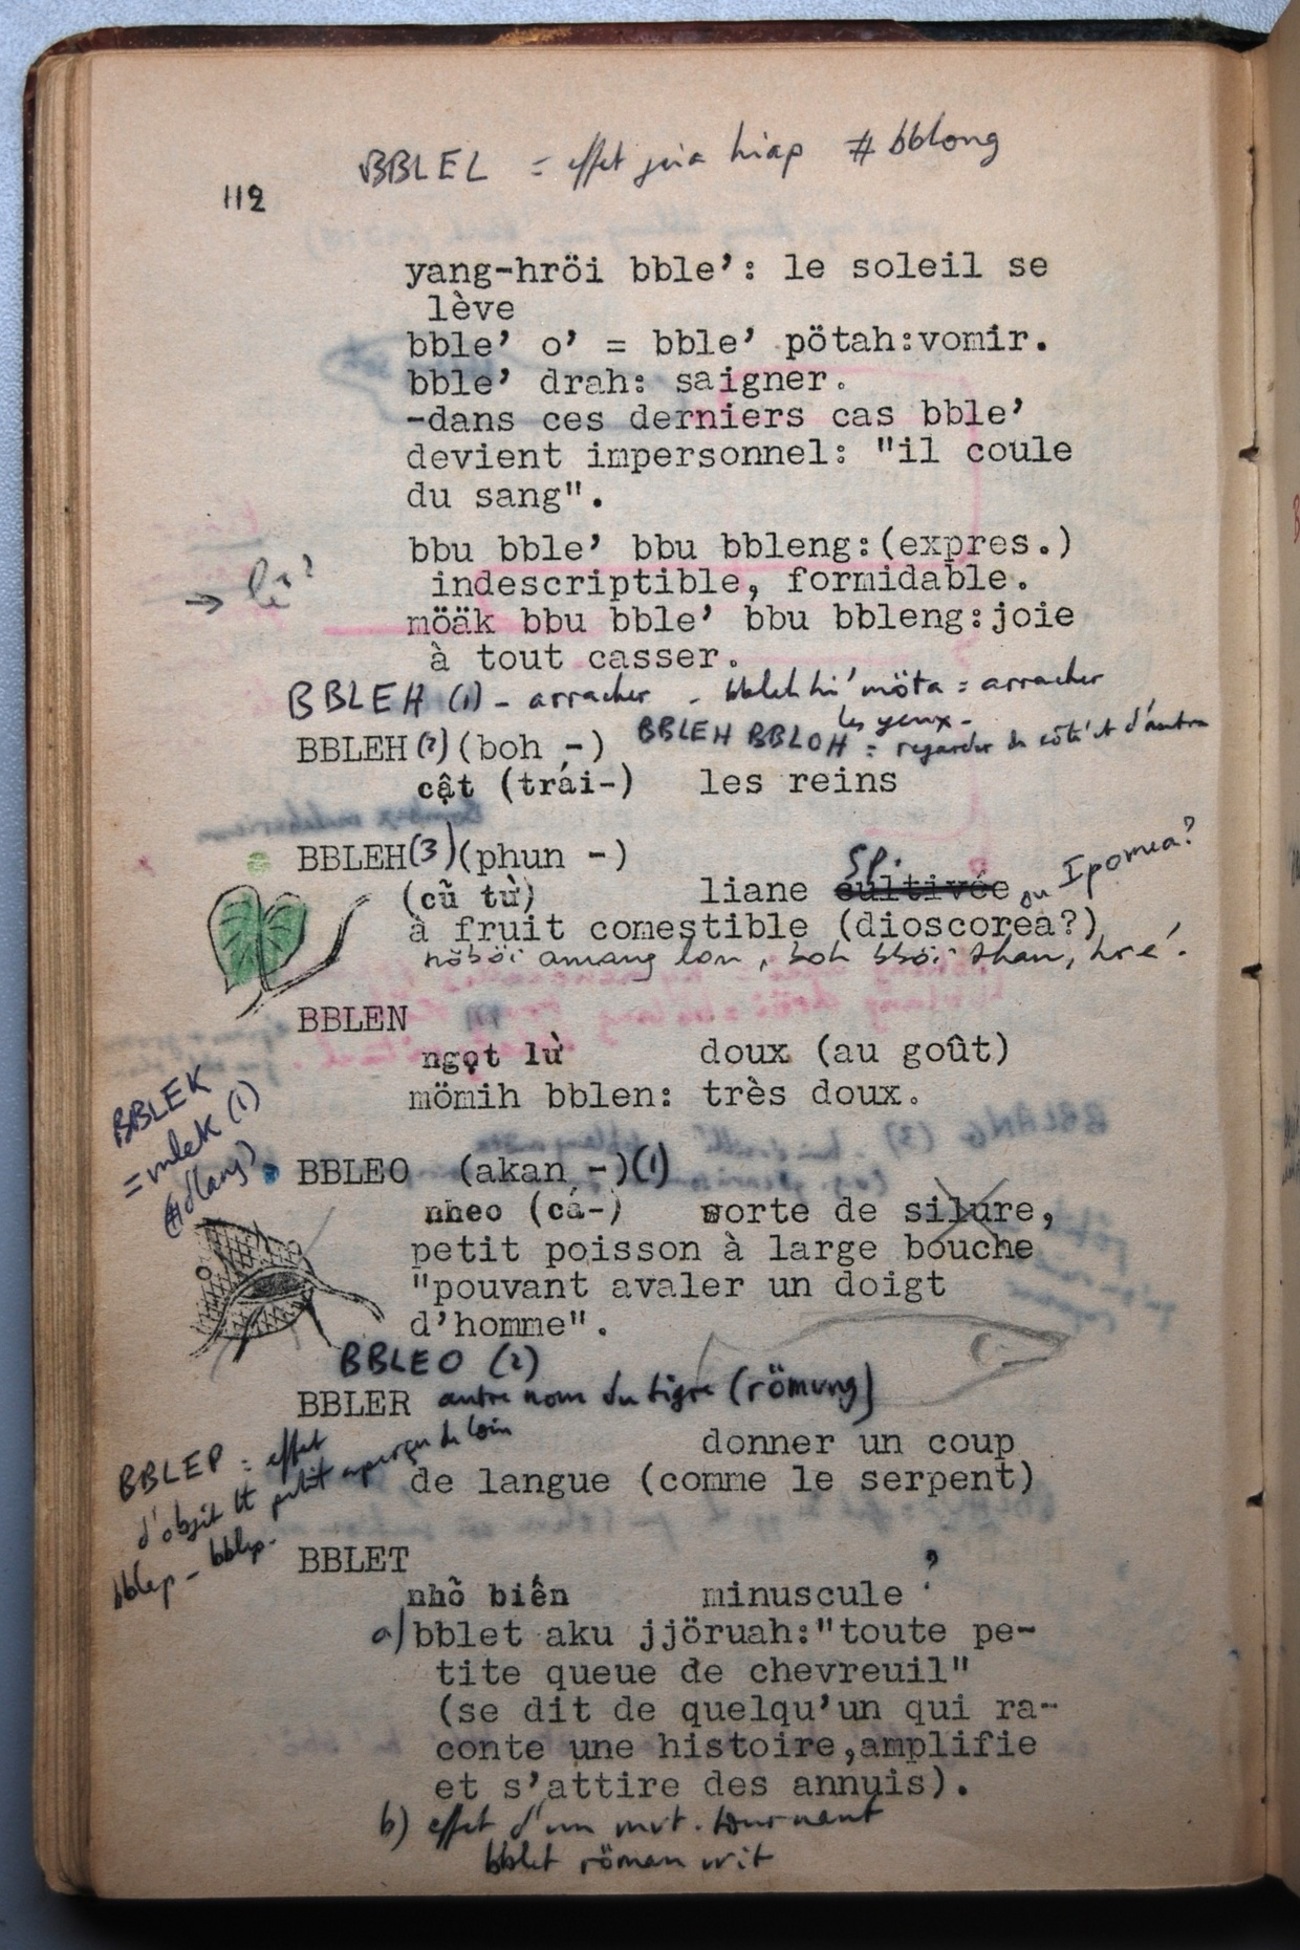 BBLEL = effet jœia hiap # bblong
112
yang-hröi bble’: le soleil se
lève
bble’ o’ = bble’ pötah:vomir.
bble’ drah: saigner.
-dans ces derniers cas bble’
devient impersonnel: "il coule
du sang".
bbu bble’ bbu bbleng:(expres.)
indescriptible, formidable.
möäk bbu bble’ bbu bbleng:joie
à tout casser.
BBLEH (1) - arracher - bbleh hi’ möta = arracher
les yeux -
BBLEH (2) (boh -) BBLEH BBLOH = regarder de côté et d'autre
cật (trái-) les reins
BBLEH(3)(phun -)
sp.
(cũ từ) liane cultivée ou Ipomea?
à fruit comestible (dioscorea?)
höböi amang lon, boh bböi than, hré.
BBLEN
ngọt lừ doux (au goût)
mömih bblen: très doux.
BBLEK
= mlek (1)
(# dlang)
BBLEO (akan -)(1)
nheo (cá-) sorte de silure,
petit poisson à large bouche
"pouvant avaler un doigt
d’homme".
BBLEO (2)
BBLER autre nom du tigre (römung)
donner un coup
de langue (comme le serpent)
BBLEP : effet
d'objet tt petit aperçu de loin
bblep - bblep.
BBLET
nhỏ biến minuscule
a) bblet aku jjöruah:"toute pe-
tite queue de chevreuil"
(se dit de quelqu’un qui ra-
conte une histoire,amplifie
et s’attire des annuis).
b) effet d'un mvt. tournant
bblet röman wit